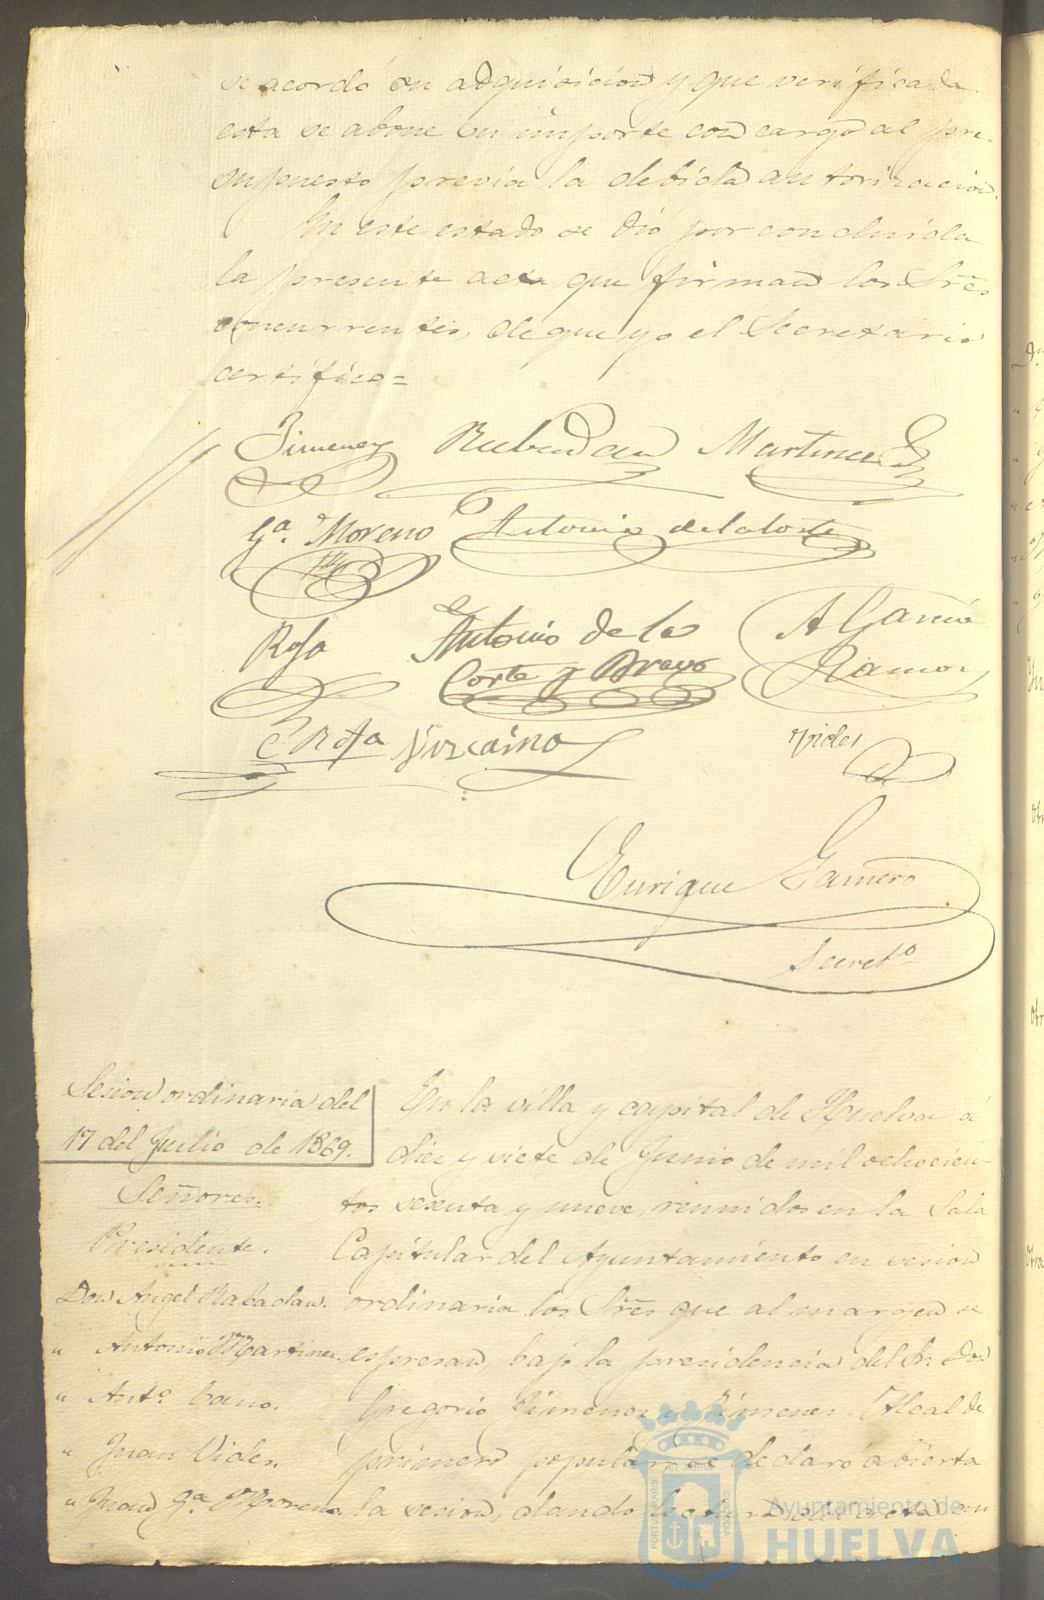 se acordó su adquisicion y que verificada
esta se abone su importe con cargo al pre-
supuesto previa la debida autorizacion.
En este estado se dió por concluida
la presente acta que firman los Sres
concurrentes, de que yo el Secretario
certifico=
Jimenez Rabadan Martinez
Ga. Moreno Antonio de la Corte
Rofa Antonio de la A Garcia
Corte y Bravo Ramos
C Rofa Vizcaino Vides
Enrique Gamero
Secreto
Sesion ordinaria del
17 del Julio de 1869.
Señores.
Presidente.
Don Angel Rabadan.
" Antonio Martinez
" Anto. Cano.
" Juan Vides.
" Juan Ga. Moreno
En la villa y capital de Huelva á
diez y siete de Junio de mil ochocien-
tos sesenta y nueve, reunidos en la Sala
Capitular del Ayuntamiento en sesion
ordinaria los Sres que al margen se
espresan, bajo la presidencia del Sr. Don
Gregorio Jimenez y Jimenez, Alcalde
primero popular se declaró abierta
la sesion, dando lectura del acta an
Ayuntamiento de
HUELVA